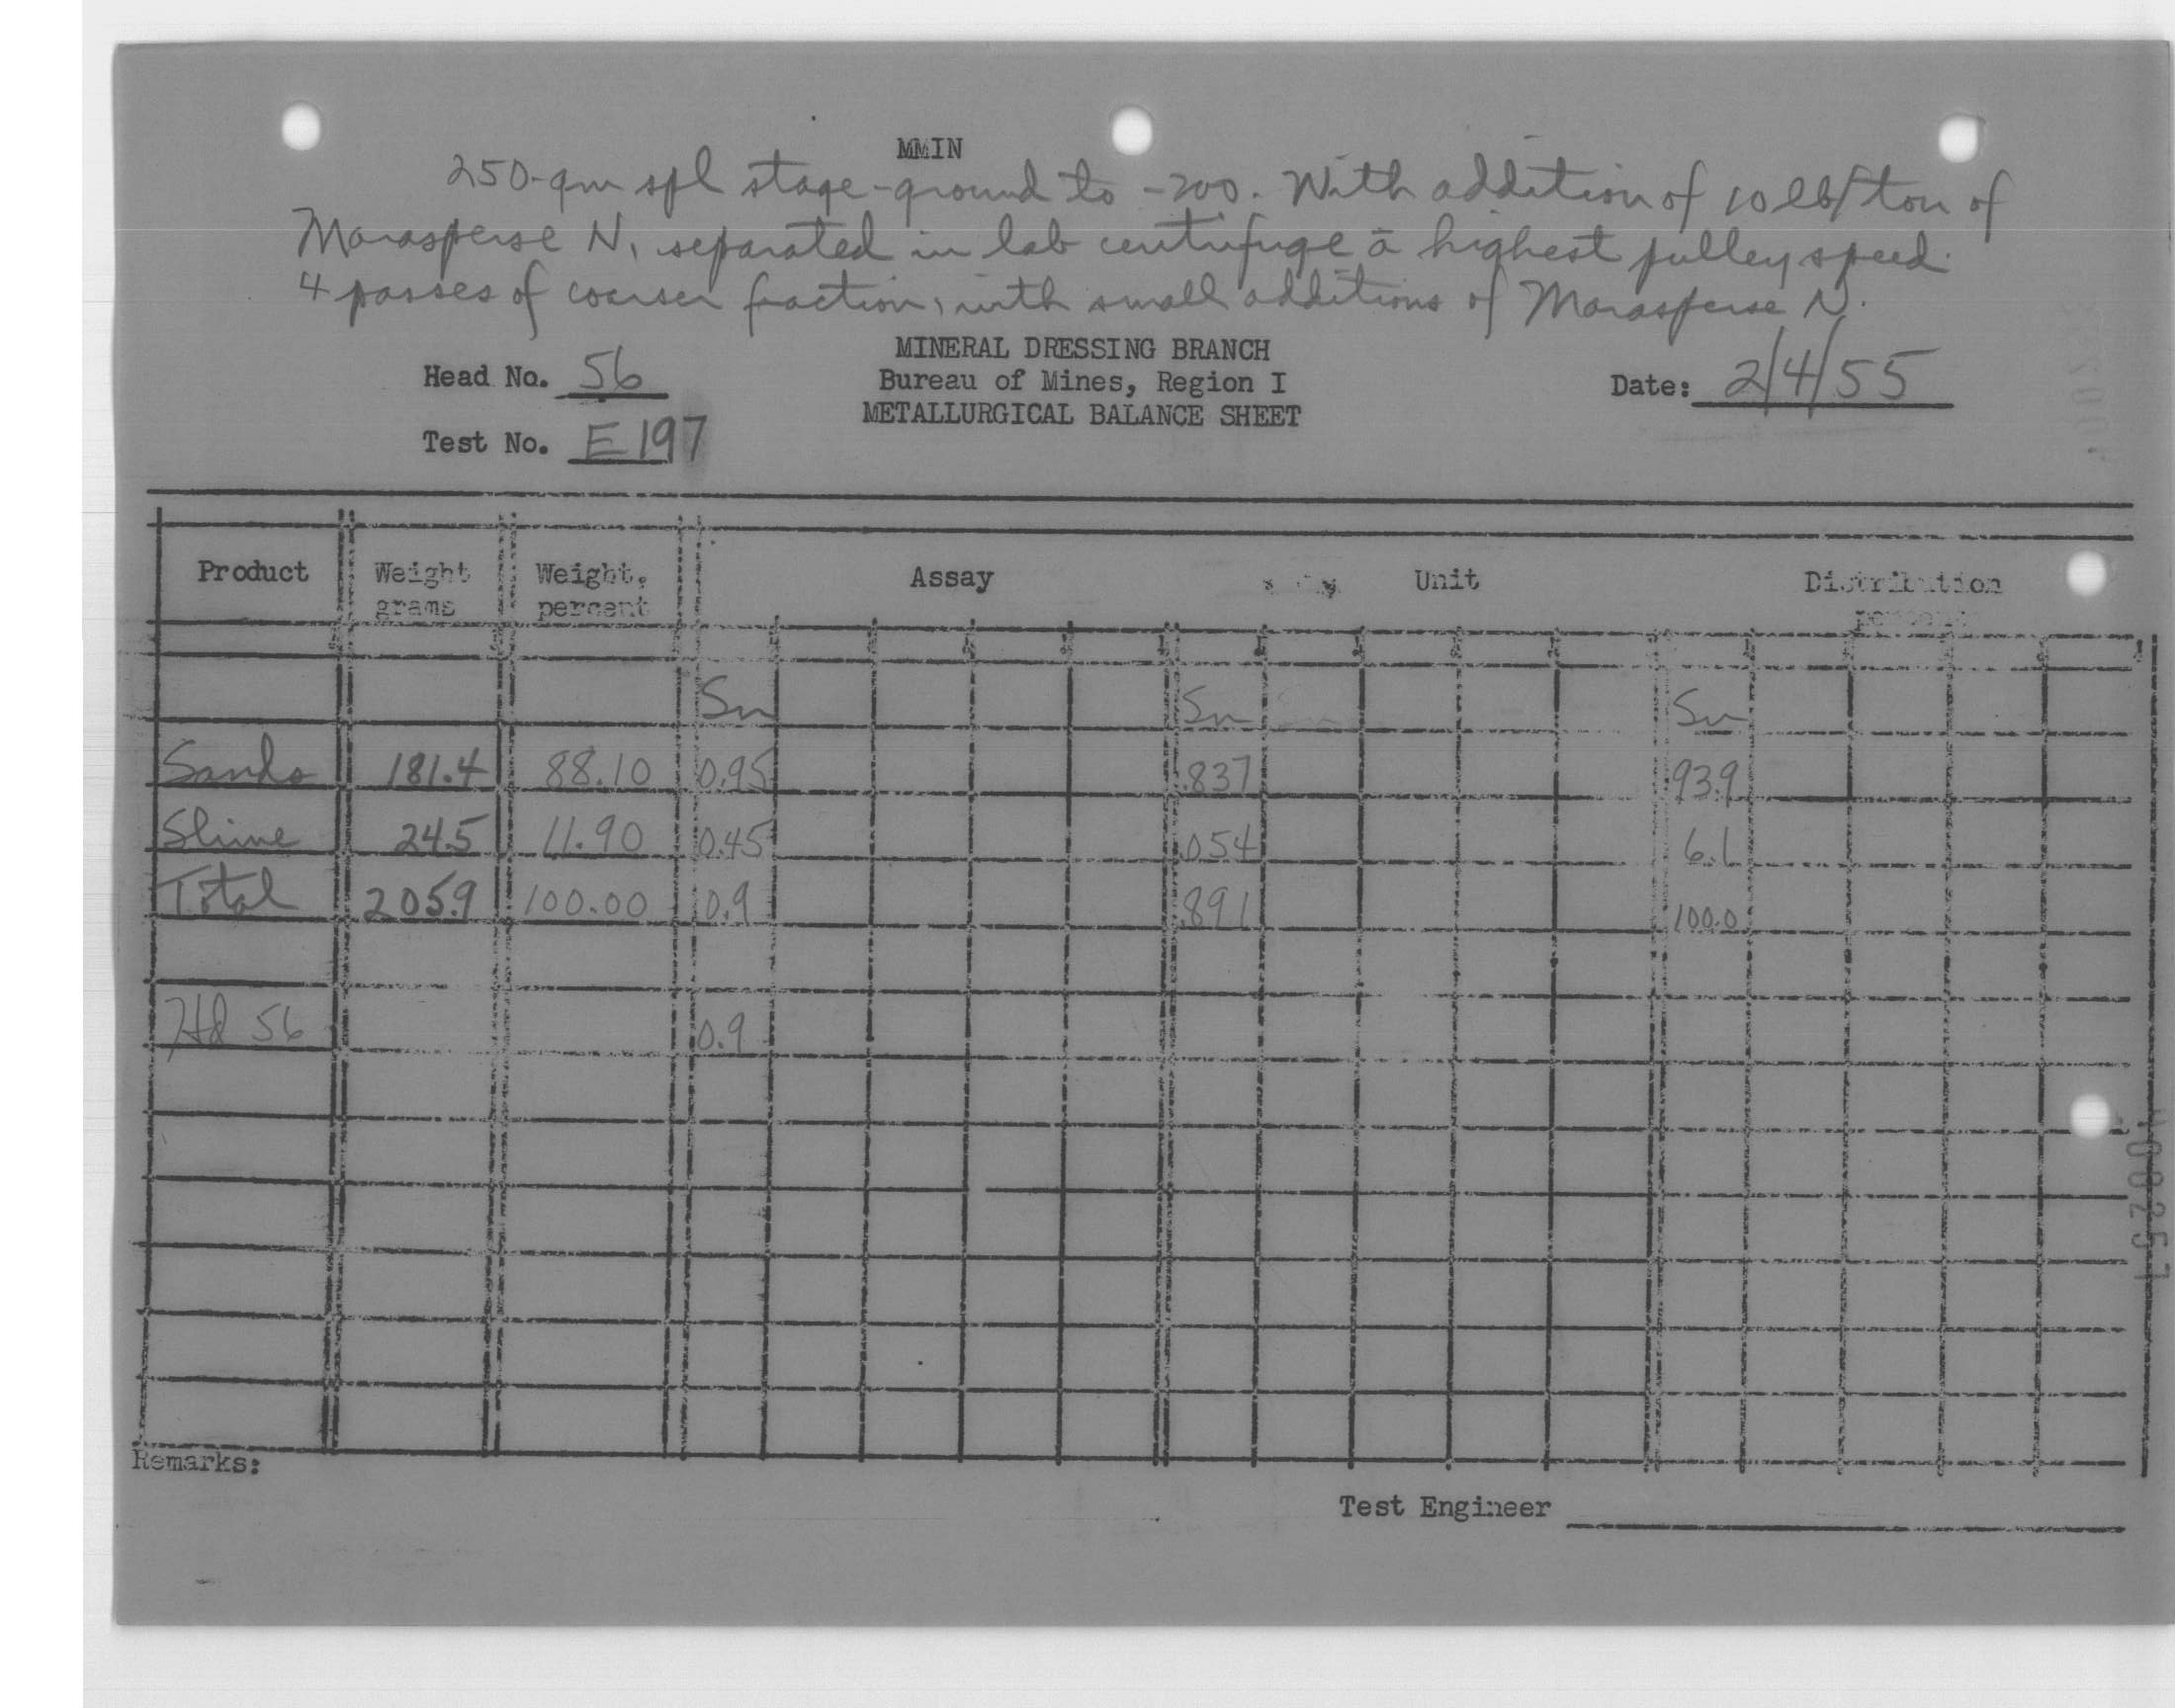 MMIN
250-gm spl stage-ground to -200. With addition of 10 lb/ton of
Marasperse N, separated in lab centrifuge ā highest pulley speed.
4 passes of coarser fraction, with small additions of Marasperse N.
MINERAL DRESSING BRANCH
Head No. 56 Bureau of Mines, Region I Date: 2/4/55
METALLURGICAL BALANCE SHEET
Test No. E197
Product Weight grams Weight, percent Assay Unit Distribution percent
Sn Sn Sn
Sands 181.4 88.10 0.95 .837 93.9
Slime 24.5 11.90 0.45 .054 6.1
Total 205.9 100.00 0.9 .891 100.0
Hd 56 0.9
Remarks:
Test Engineer